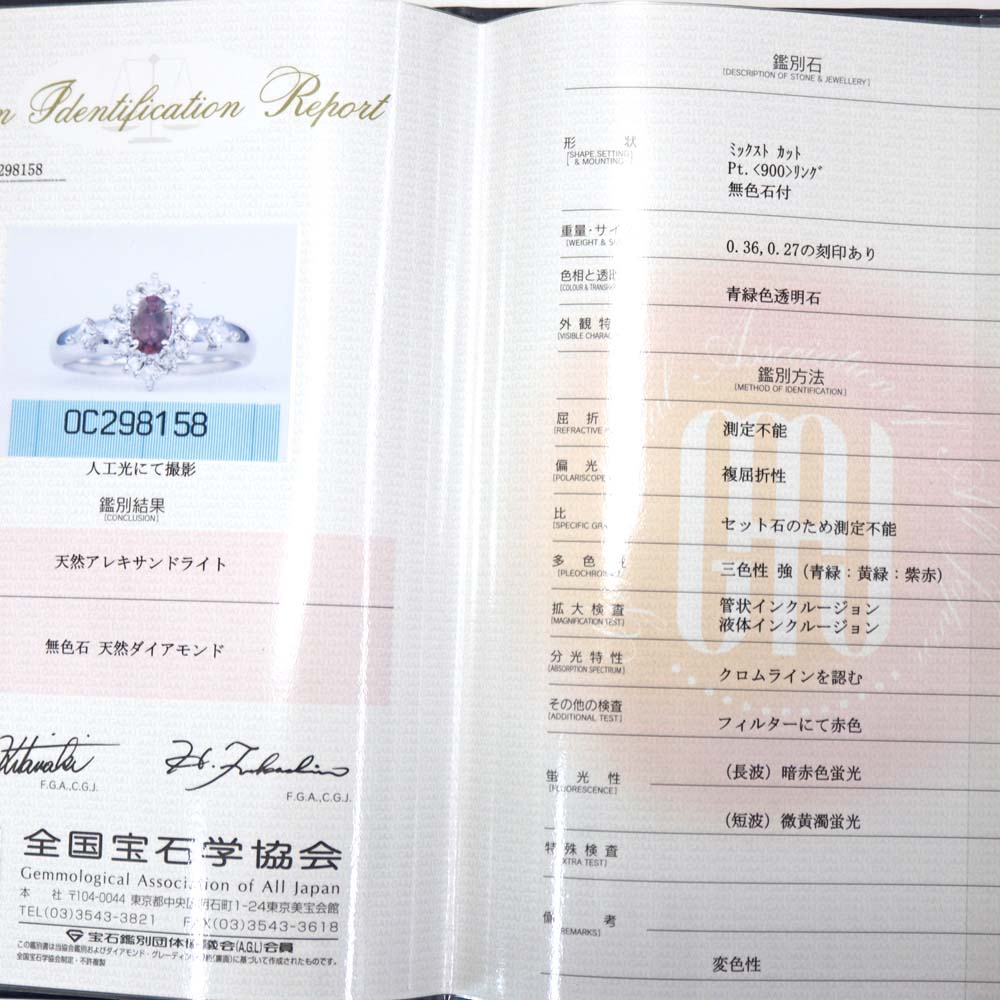 Identification Report
298158
OC298158
人工光にて撮影
鑑別結果
[CONCLUSION]
天然アレキサンドライト
無色石 天然ダイアモンド
F.G.A.,C.G.J.
F.G.A.,C.G.J.
全国宝石学協会
Gemmological Association of All Japan
本 社 〒104-0044 東京都中央区明石町1-24東京美宝会館
TEL(03)3543-3821 FAX(03)3543-3618
宝石鑑別団体協議会(A.G.L)会員
全国宝石学協会制定・不許複製
鑑別石
[DESCRIPTION OF STONE & JEWELLERY]
形 状
[SHAPE,SETTING
& MOUNTING]
ミックスト カット
Pt.<900>リング
無色石付
重量・サイ
[WEIGHT &
0.36,0.27の刻印あり
色相と透
[COLOUR &
青緑色透明石
外観特
[VISIBLE
鑑別方法
[METHOD OF IDENTIFICATION]
屈 折
[REFRACTIVE
測定不能
偏 光
[POLARISCOPE
複屈折性
比
[SPECIFIC
セット石のため測定不能
多 色 性
三色性 強 (青緑:黄緑:紫赤)
拡大検査
[MAGNIFICATION TEST]
管状インクルージョン
液体インクルージョン
分光特性
[ABSORPTION SPECTRUM]
クロムラインを認む
その他の検査
[ADDITIONAL TEST]
フィルターにて赤色
蛍 光 性
[FLUORESCENCE]
(長波) 暗赤色蛍光
(短波) 微黄濁蛍光
特殊検査
[EXTRA TEST]
備 考
[REMARKS]
変色性